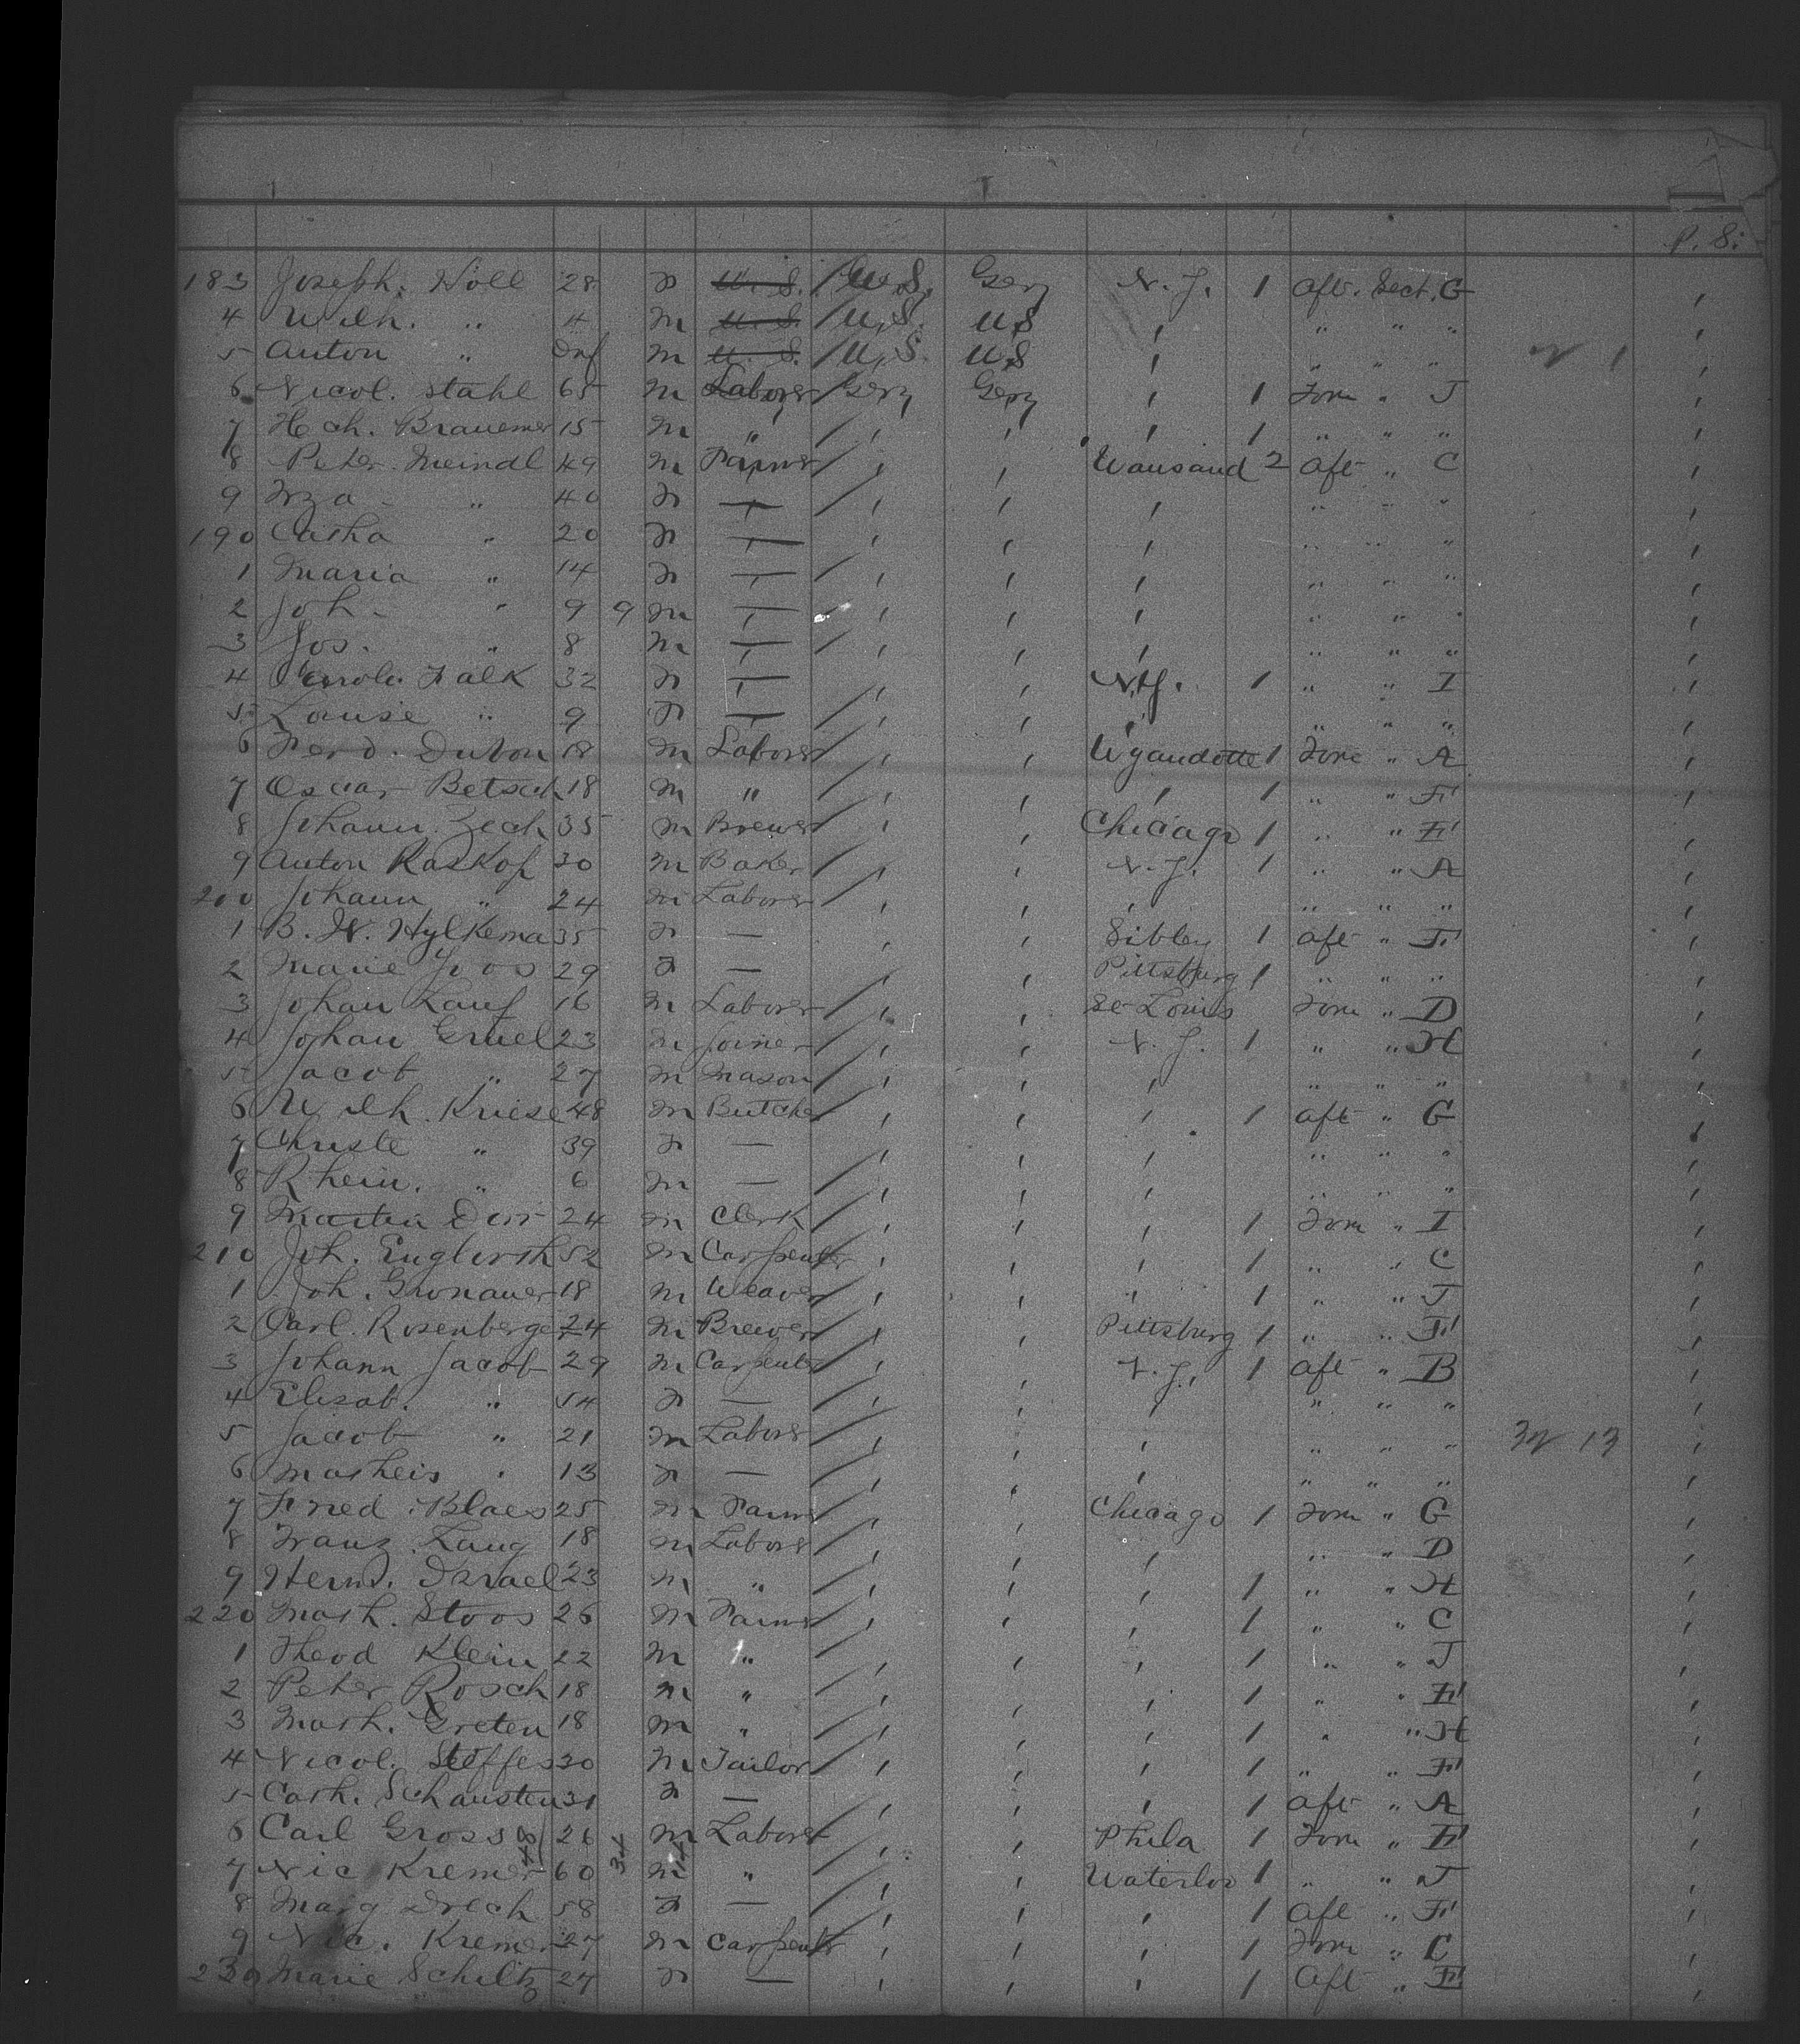 P. S.
183 Joseph. Höll 28 F U. S. U. S. Gery N. J. 1 Aft. Sect. G
4 Wilh. " 4 M U. S. U. S. U S " " "
5 Anton " Inf M U. S. U. S. U S " " " 1
6 Nicol. Stahl 65 M Laborer Gery Gery 1 Forw " J
7 Hch. Brauemer 15 M " 1 " " "
8 Peter Meindl 49 M Farmer Wausaud 2 Aft " C
9 " 40 F — " " "
190 Catha " 20 F — " " "
1 Maria " 14 F — " " "
2 Joh. " 9 9 M — " " "
3 Jos. " 8 M — " " "
4 Carol. Falk 32 F — N.Y. 1 " " I
5 Louise " 9 F — " " "
6 Ferd. Dubon 18 M Laborer Wyandotte 1 Forw " A
7 Oscar Betsch 18 M " 1 " " F
8 Johann Zech 35 M Brewer Chicago 1 " " F
9 Anton Raskop 30 M Baker N. J. 1 " " A
200 Johann " 24 M Laborer " " "
1 B. W. Hylkema 35 F — Sibley 1 Aft " F
2 Marie Joos 29 F — Pittsburg 1 " " "
3 Johan Lauf 16 M Laborer St Louis Forw " D
4 Johan Gruel 23 M Joiner N. J. 1 " " H
5 Jacob " 27 M Mason " " "
6 Wilh. Kriese 48 M Butcher 1 Aft " G
7 Christe " 39 F — " " "
8 Rhein. " 6 M — " " "
9 Martin Dörr 24 M Clerk 1 Forw " I
210 Joh. Englerth 52 M Carpenter 1 " " C
1 Joh. Gronauer 18 M Weaver 1 " " J
2 Carl. Rosenberger 24 M Brewer Pittsburg 1 " " F
3 Johann Jacob 29 M Carpenter N. J. 1 Aft " B
4 Elisab. " 54 F — " " "
5 Jacob " 21 M Laborer " " " 13
6 Matheis " 13 F — " " "
7 Fried. Blaes 25 M Farmer Chicago 1 Forw " G
8 Franz Lang 18 M Laborer " " D
9 Herm. Israel 23 M " 1 " " H
220 Math. Stoos 26 M Farmer 1 " " C
1 Theod Klein 22 M " 1 " " J
2 Peter Rosch 18 M " 1 " " F
3 Math. Greten 18 M " 1 " " H
4 Nicol. Steffes 30 M Tailor 1 " " F
5 Cath. Schausten 31 F — 1 Aft " A
6 Carl Gross 26 M Laborer Phila 1 Forw " F
7 Nic Kremer 60 34 M " Waterloo 1 " " J
8 Marg Drech 58 F — 1 Aft " F
9 Nic. Kremer 27 M Carpenter 1 Forw " C
230 Marie Schiltz 24 F — 1 Aft " F